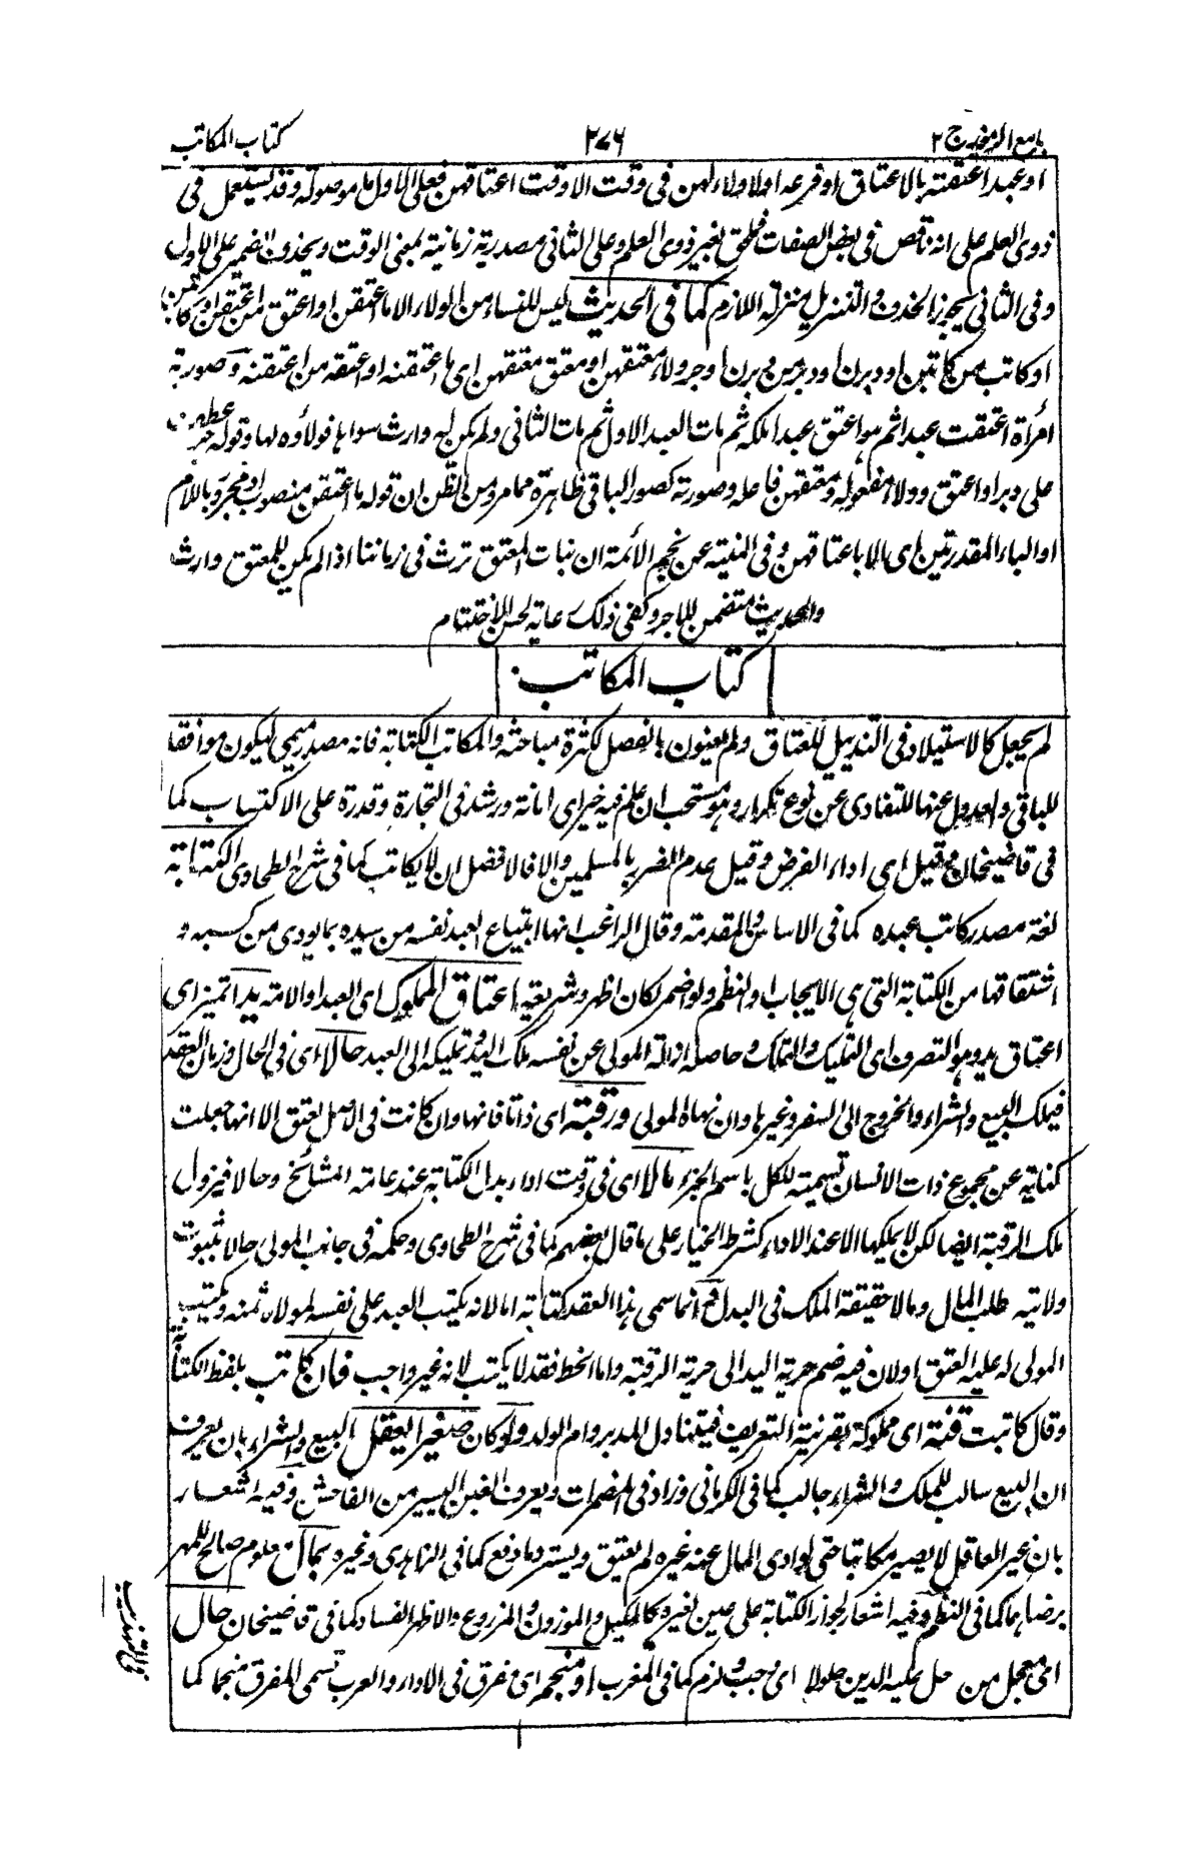 جامع الرموز ج ٢
٣٧٦
كتاب المكاتب
او عبد اعتقنه بالاعتاق او فرعه اولا ولاء لهن فى وقت الا وقت اعتاقهن فعلى الاول ما موصولة وقد يستعمل فى
ذوى العلم على انه ناقص فى بعض الصفات فملحق بغير ذوى العلم وعلى الثانى مصدرية زمانية بمعنى الوقت ويحذف الضمير على الاول
وفى الثانى يجوز الحذف والتنزيل منزلة اللازم كما فى الحديث ليس للنساء من الولاء الا ما اعتقن او اعتق من اعتقن او كاتبن
او كاتب من كاتبن او دبرن او دبر من دبرن او جر ولاء معتقهن او معتق معتقهن اى ما اعتقنه او اعتقه من اعتقنه وصورته
امرأة اعتقت عبدا ثم هو اعتق عبدا ملكه ثم مات العبد الاول ثم مات الثانى ولم يكن له وارث سواها فولاؤه لها وقوله جر عطف
على دبر او اعتق وولاء مفعوله ومعتقهن فاعله وصورته كصور الباقى ظاهرة مما مر ومن الظن ان قوله ما اعتقن منصوب او مجرور باللام
او الباء المقدرتين اى الا باعتاقهن وفى المنية عن نجم الائمة ان بنات المعتق ترث فى زماننا اذا لم يكن للمعتق وارث
والحديث متضمن للجر وكفى ذلك رعاية لحسن الاختتام
كتاب المكاتب
لم يجعل كالاستيلاد فى التذييل للعتاق ولم يعنون بالفصل لكثرة مباحثه والمكاتب الكتابة فانه مصدر ميمى ليكون موافقا
للباقى والعدول عنها للتفادى عن نوع تكرار وهو مستحب ان علم فيه خير اى امانة ورشد فى التجارة وقدرة على الاكتساب كما
فى قاضيخان وقيل اى اداء الفرض وقيل عدم الضرر بالمسلمين والا فالافضل ان لا يكاتب كما فى شرح الطحاوى الكتابة
لغة مصدر كاتب عبده كما فى الاساس والمقدمة وقال الراغب انها ابتياع العبد نفسه من سيده بما يودى من كسبه و
اشتقاقها من الكتابة التى هى الايجاب او النظم ولو اضمر لكان اظهر وشريعة اعتاق المملوك اى العبد او الامة يدا تميز اى
اعتاق يد وهو التصرف اى التمليك والتملك وحاصله ازالة المولى عن نفسه ملك اليد وتمليكه الى العبد حالا اى فى الحال وزمان العقد
فيملك البيع والشراء والخروج الى السفر وغيرها وان نهاه المولى ورقبة اى ذاتا فانها وان كانت فى الاصل لعتق الا انها جعلت
كناية عن مجموع ذات الانسان تسمية للكل باسم الجزء مالا اى فى وقت اداء بدل الكتابة عند عامة المشائخ وحالا فيزول
ملك الرقبة ايضا لكن لا يملكها الا عند الاداء كشرط الخيار على ما قال بعضهم كما فى شرح الطحاوى وحكمه فى جانب المولى حالا ثبوت
ولاية طلب المال ومالا حقيقة الملك فى البدل انما سمى هذا العقد كتابة اما لانه يكتب العبد على نفسه لمولاه ثمنه ويكتب
المولى له عليه العتق او لان فيه ضم حرية اليد الى حرية الرقبة واما الخط فقد لا يكتب لانه غير واجب فان كاتب بلفظ الكتابة
وقال كاتبت قنه اى مملوكه بقرينة التعريف فيتناول المدبر وام الولد ولو كان صغير العقل البيع والشراء بان يعرف
ان البيع سالب للملك والشراء جالب كما فى الكرمانى وزاد فى المضمرات ويعرف الغبن اليسير من الفاحش وفيه اشعار
بان غير العاقل لا يصير مكاتبا حتى لو ادى المال عنه غيره لم يعتق ويسترد ما دفع كما فى الزاهدى وغيره بمال معلوم صالح للمهر
برضاهما كما فى النظم وفيه اشعار لجواز الكتابة على عين لغيره كالمكيل والموزون والمزروع والاظهر الفساد كما فى قاضيخان حال
اى معجل من حل عليه الدين حلولا اى وجب ولزم كما فى المغرب او منجم اى مفرق فى الاداء والعرب تسمى المفرق منجما كما